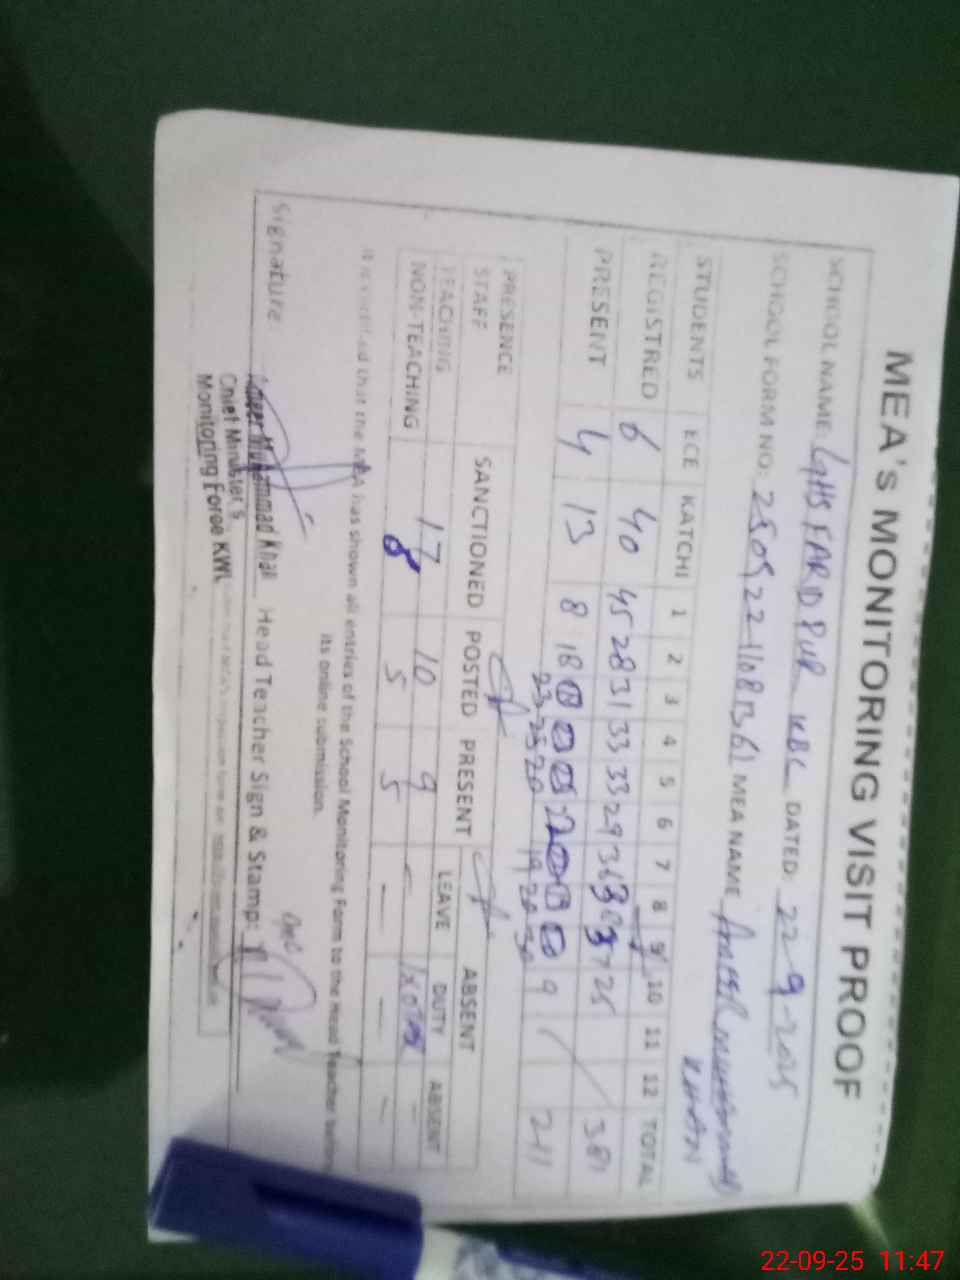 MEA's MONITORING VISIT PROOF
SCHOOL NAME: GHS FARID PUR KBC DATED: 22-9-2025
SCHOOL FORM NO: MEA NAME KHAN
STUDENTS ECE KATCHI 1 2 3 4 5 6 7 8 9 10 11 12 TOTAL
REGISTRED 6 40 45 28 31 33 33 29 36 25 381
PRESENT 4 13 8 18 22 9 211
23 25 20 19 20 30
PRESENCE
STAFF SANCTIONED POSTED PRESENT ABSENT
LEAVE DUTY ABSENT
TEACHING 17 10 9 - -
NON-TEACHING 8 5 5 - - -
It is verified that the MEA has shown all entries of the School Monitoring Form to the Head Teacher before
its online submission.
Signature: Head Teacher Sign & Stamp:
Ameer Muhammad Khan
Chief Minister's
Monitoring Force KWL
22-09-25 11:47